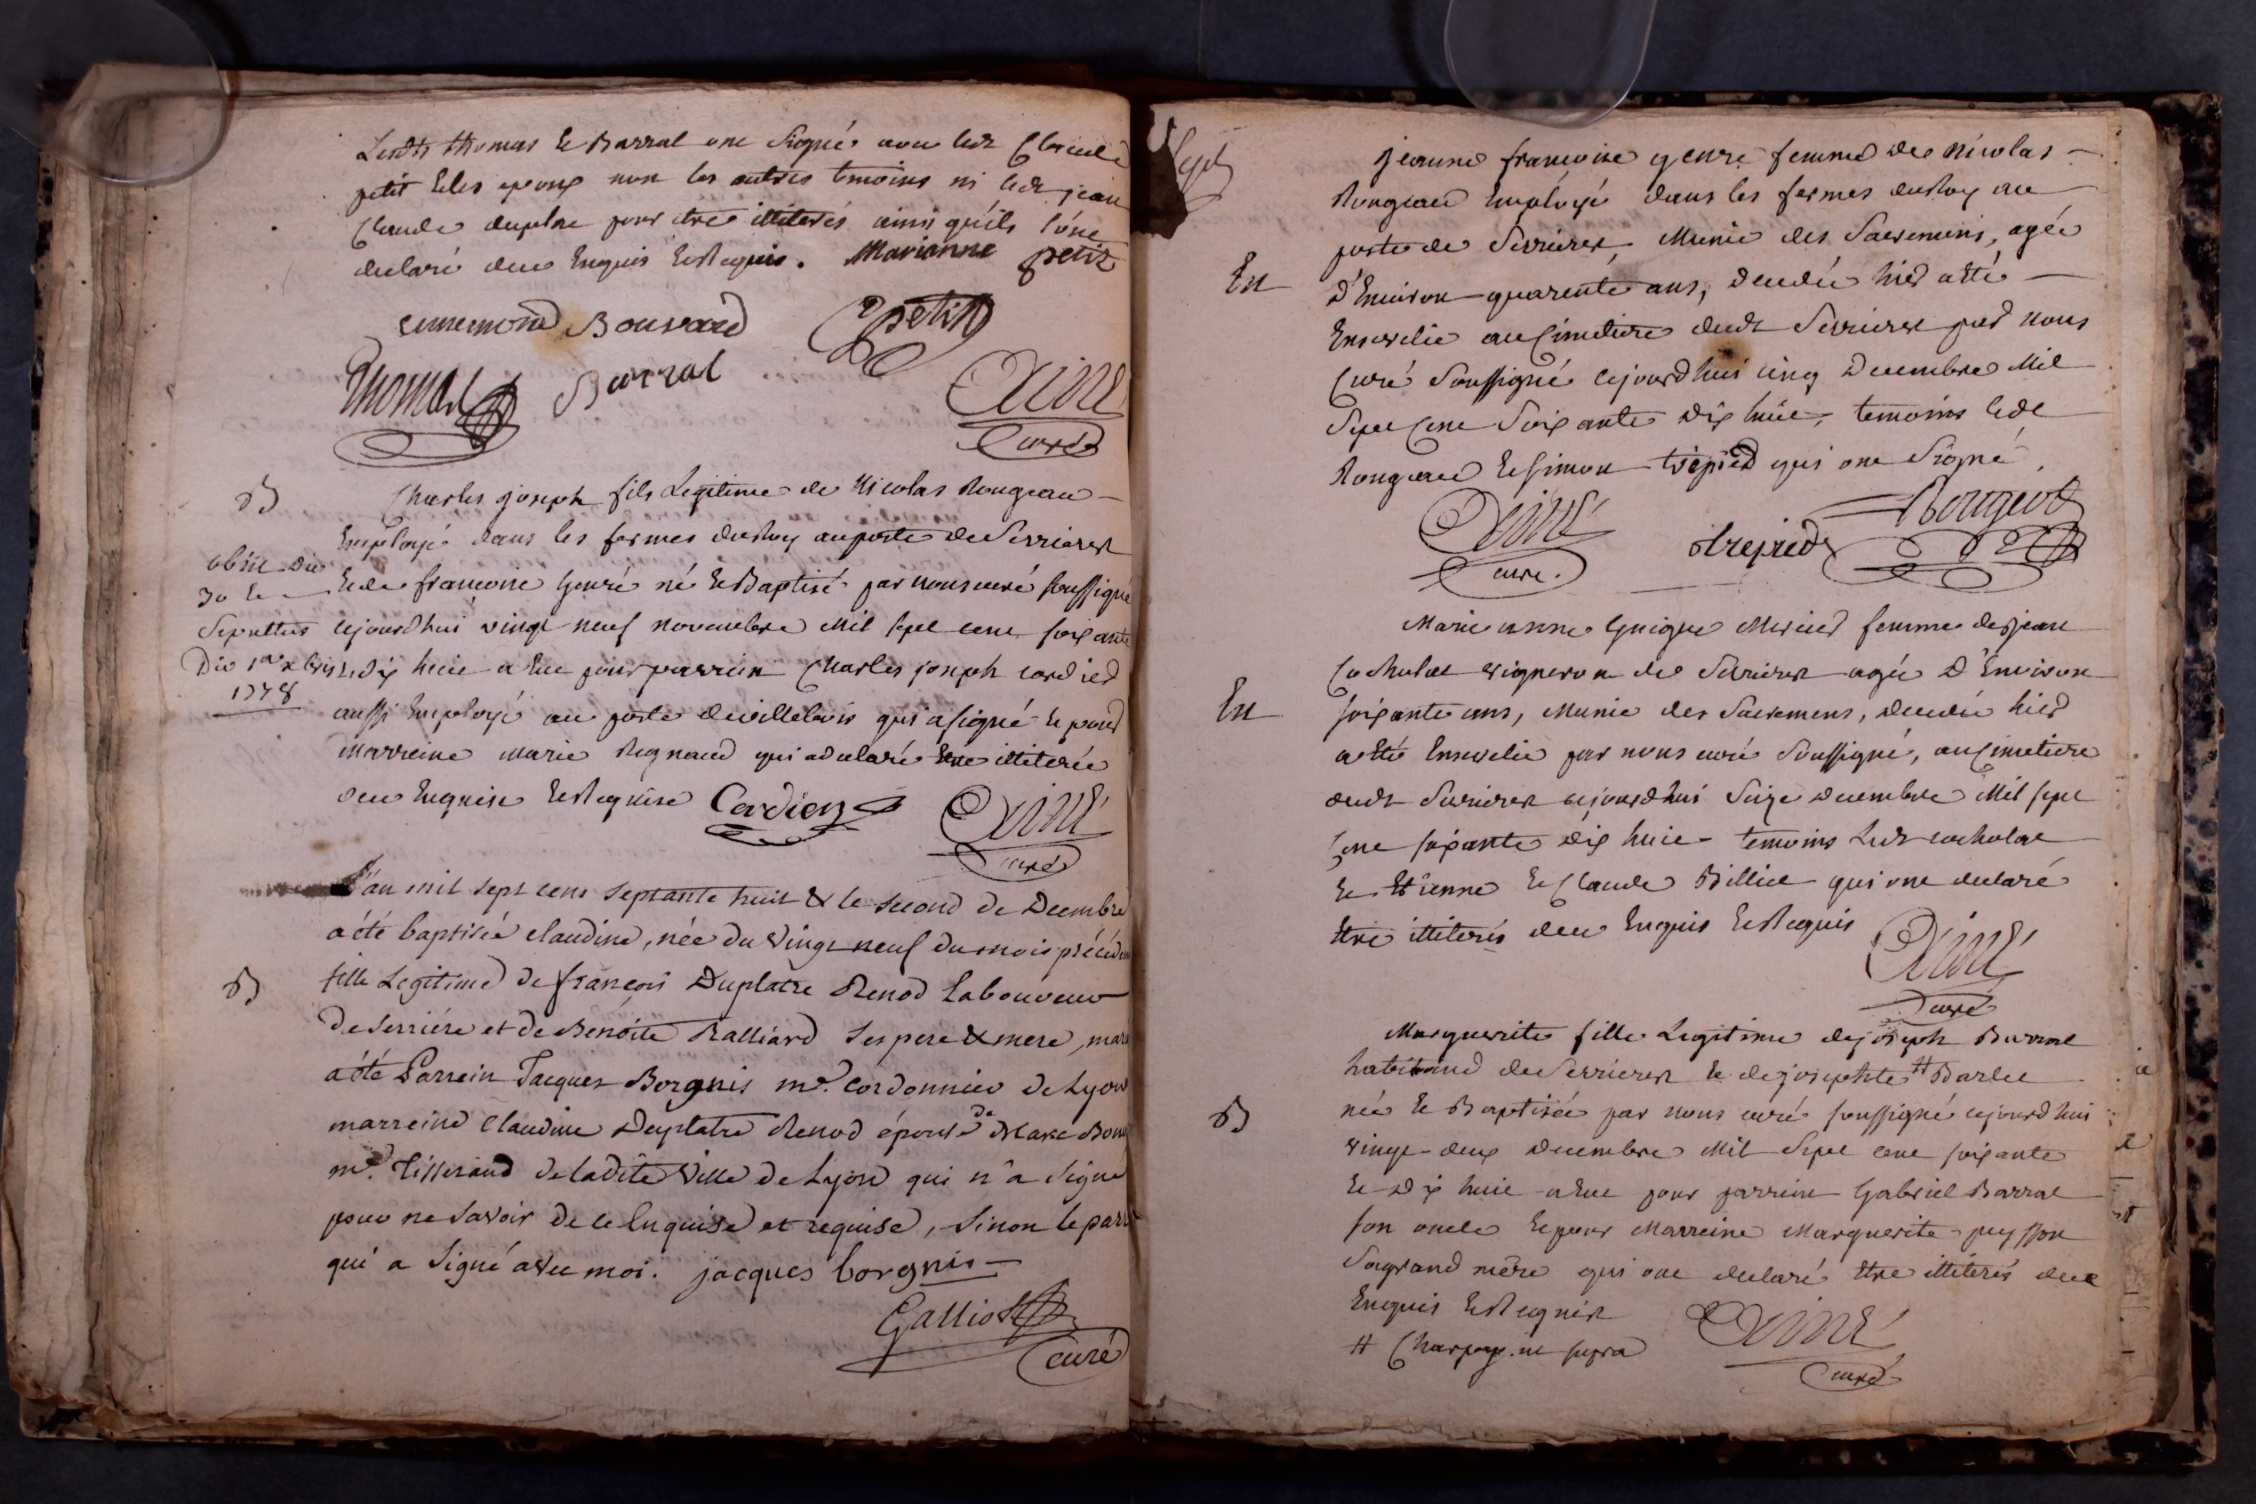 Lesdts thomas et Barral ont signé avec ledt Claude
petit et les epoux non les autres temoins ni ledt jean
Claude duplatre pour etre illiterés ainsi qu'ils l'ont
declaré deue Enquis et Requis. Marianne petit
ennemond Bouvard petit
Thomas Barral
curé
B
Charles joseph fils Legitime de Nicolas Rougeau
Employé dans les fermes du Roy au poste de Serrieres
obiit die
30 et
Sepultus
Die 1a xbris
1778
et de francoise Genre né et Baptisé par nous curé soussigné
cejourd'hui vingt neuf novembre Mil sept cent soixante
et dix huit a eue pour parrein Charles joseph cardied
aussi Employé au poste de villebois qui a signé et pour
Marreine marie Regnaud qui a declaré etre illiterée
deue Enquise et Requise Cardien
curé
L'an mil sept cens septante huit & le second de Decembre
a été baptisée claudine, née du vingt neuf du mois précéden
B
fille Legitime de françois Duplatre Renod Laboureur
de Serriére et de Benoite Ralliard ses pere & mere,
a été Parrein Jacques Borgnis me. cordonnier de Lyon
marreine Claudine Duplatre Renod épouse de Marc
me. Tisserand de ladite ville de Lyon qui n'a signé
pour ne savoir de ce Enquise et requise, sinon le parr
qui a signé avec moi. jacques borgnis
Galliot
curé
Sept
jeanne francoise genre femme de Nicolas
Rougeau Employé dans les fermes du Roy au
poste de Serrieres, Munie des Sacremens, agée
En
D'Environ quarente ans, decedée hier a eté
Ensevelie au Cimetiere dudt Serrieres par nous
Curé Soussigné cejourd'hui cinq Decembre Mil
Sept Cent Soixante Dix huit, temoins ledt
Rougeau et Simon trepied qui ont signé.
Rougeot
trepied
curé.
Marie anne Guigue Mercier femme de jean
Cochalat vigneron de Serrieres agée D'Environ
En
soixante ans, Munie des Sacremens, decedée hier
a eté Ensevelie par nous curé Soussigné, au Cimetiere
dudt Serrieres cejourd'hui Seize Decembre Mil sept
Cent soixante dix huit temoins Ledt cochalat
et Etienne et Claude Billiet qui ont declaré
etre illiterés deue Enquis et Requis
curé
Marguerite fille Legitime de joseph Barral
habitant de Serrieres et de josephte # Barlet
B
née et Baptisée par nous curé soussigné cejourd'hui
vingt-deux Decembre Mil Sept cent soixante
et Dix huit a eue pour parrein Gabriel Barral
son oncle et pour Marreine Marguerite peysson
Sa grand mère qui ont declaré etre illiterés deue
Enquis et Requis
curé